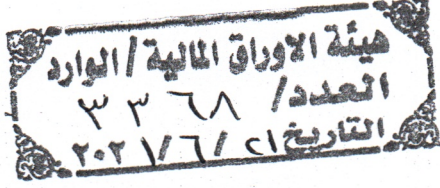 هيئة الاوراق المالية / الوارد
العدد / ٣٣٦٨
التاريخ ٢١ / ٦ / ٢٠٢١